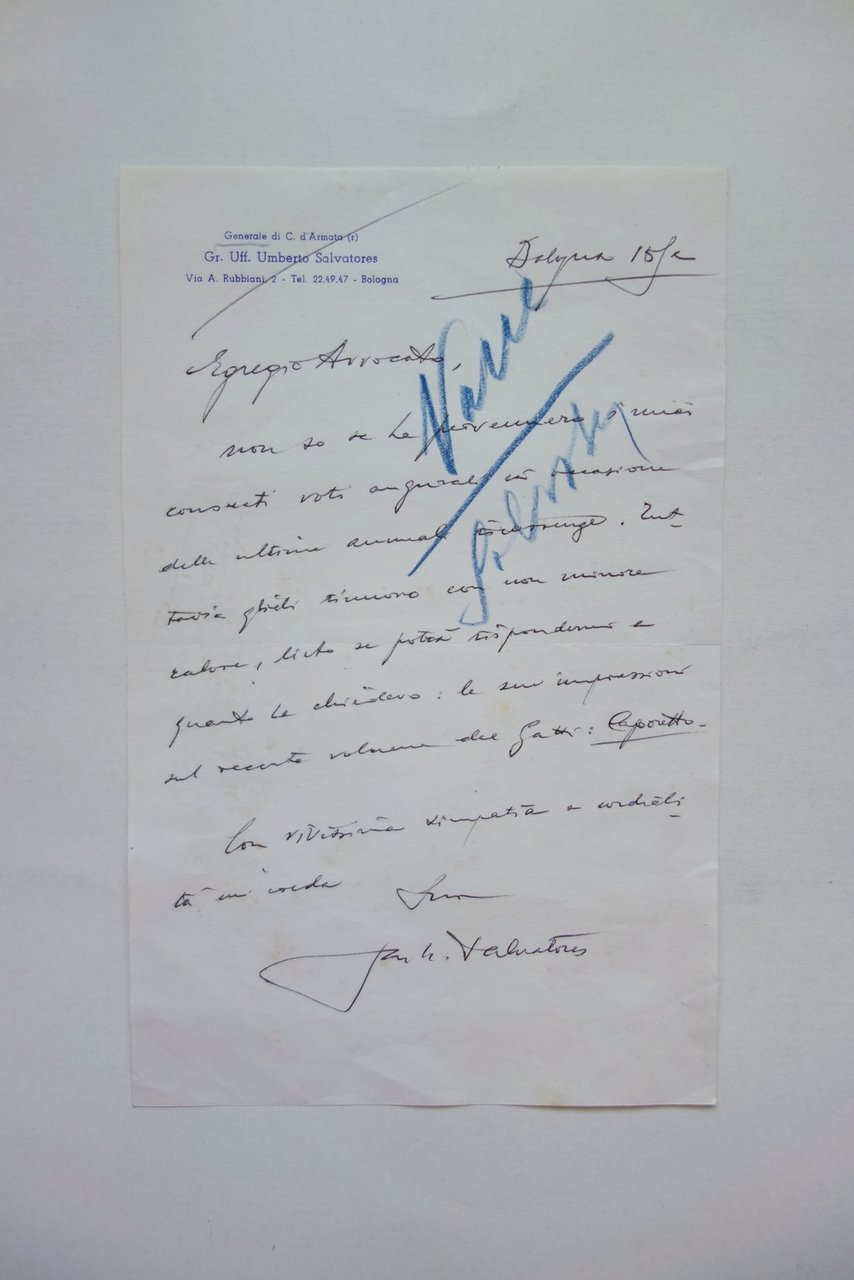 Generale di C. d'Armata (r)
Gr. Uff. Umberto Salvatores
Via A. Rubbiani, 2 - Tel. 22.49.47 - Bologna
Bologna 15/
Egregio Avvocato,
non so se Le pervennero i miei
consueti voti augurali in occasione
delle ultime annuali ricorrenze. Tut-
tavia glieli rinnovo con non minore
calore, lieto se potrà rispondermi a
quanto Le chiedevo: le sue impressioni
sul recente volume del Gatti: Caporetto.
Con vivissima simpatia e cordiali-
tà mi creda
Suo
Salvatores
Varie